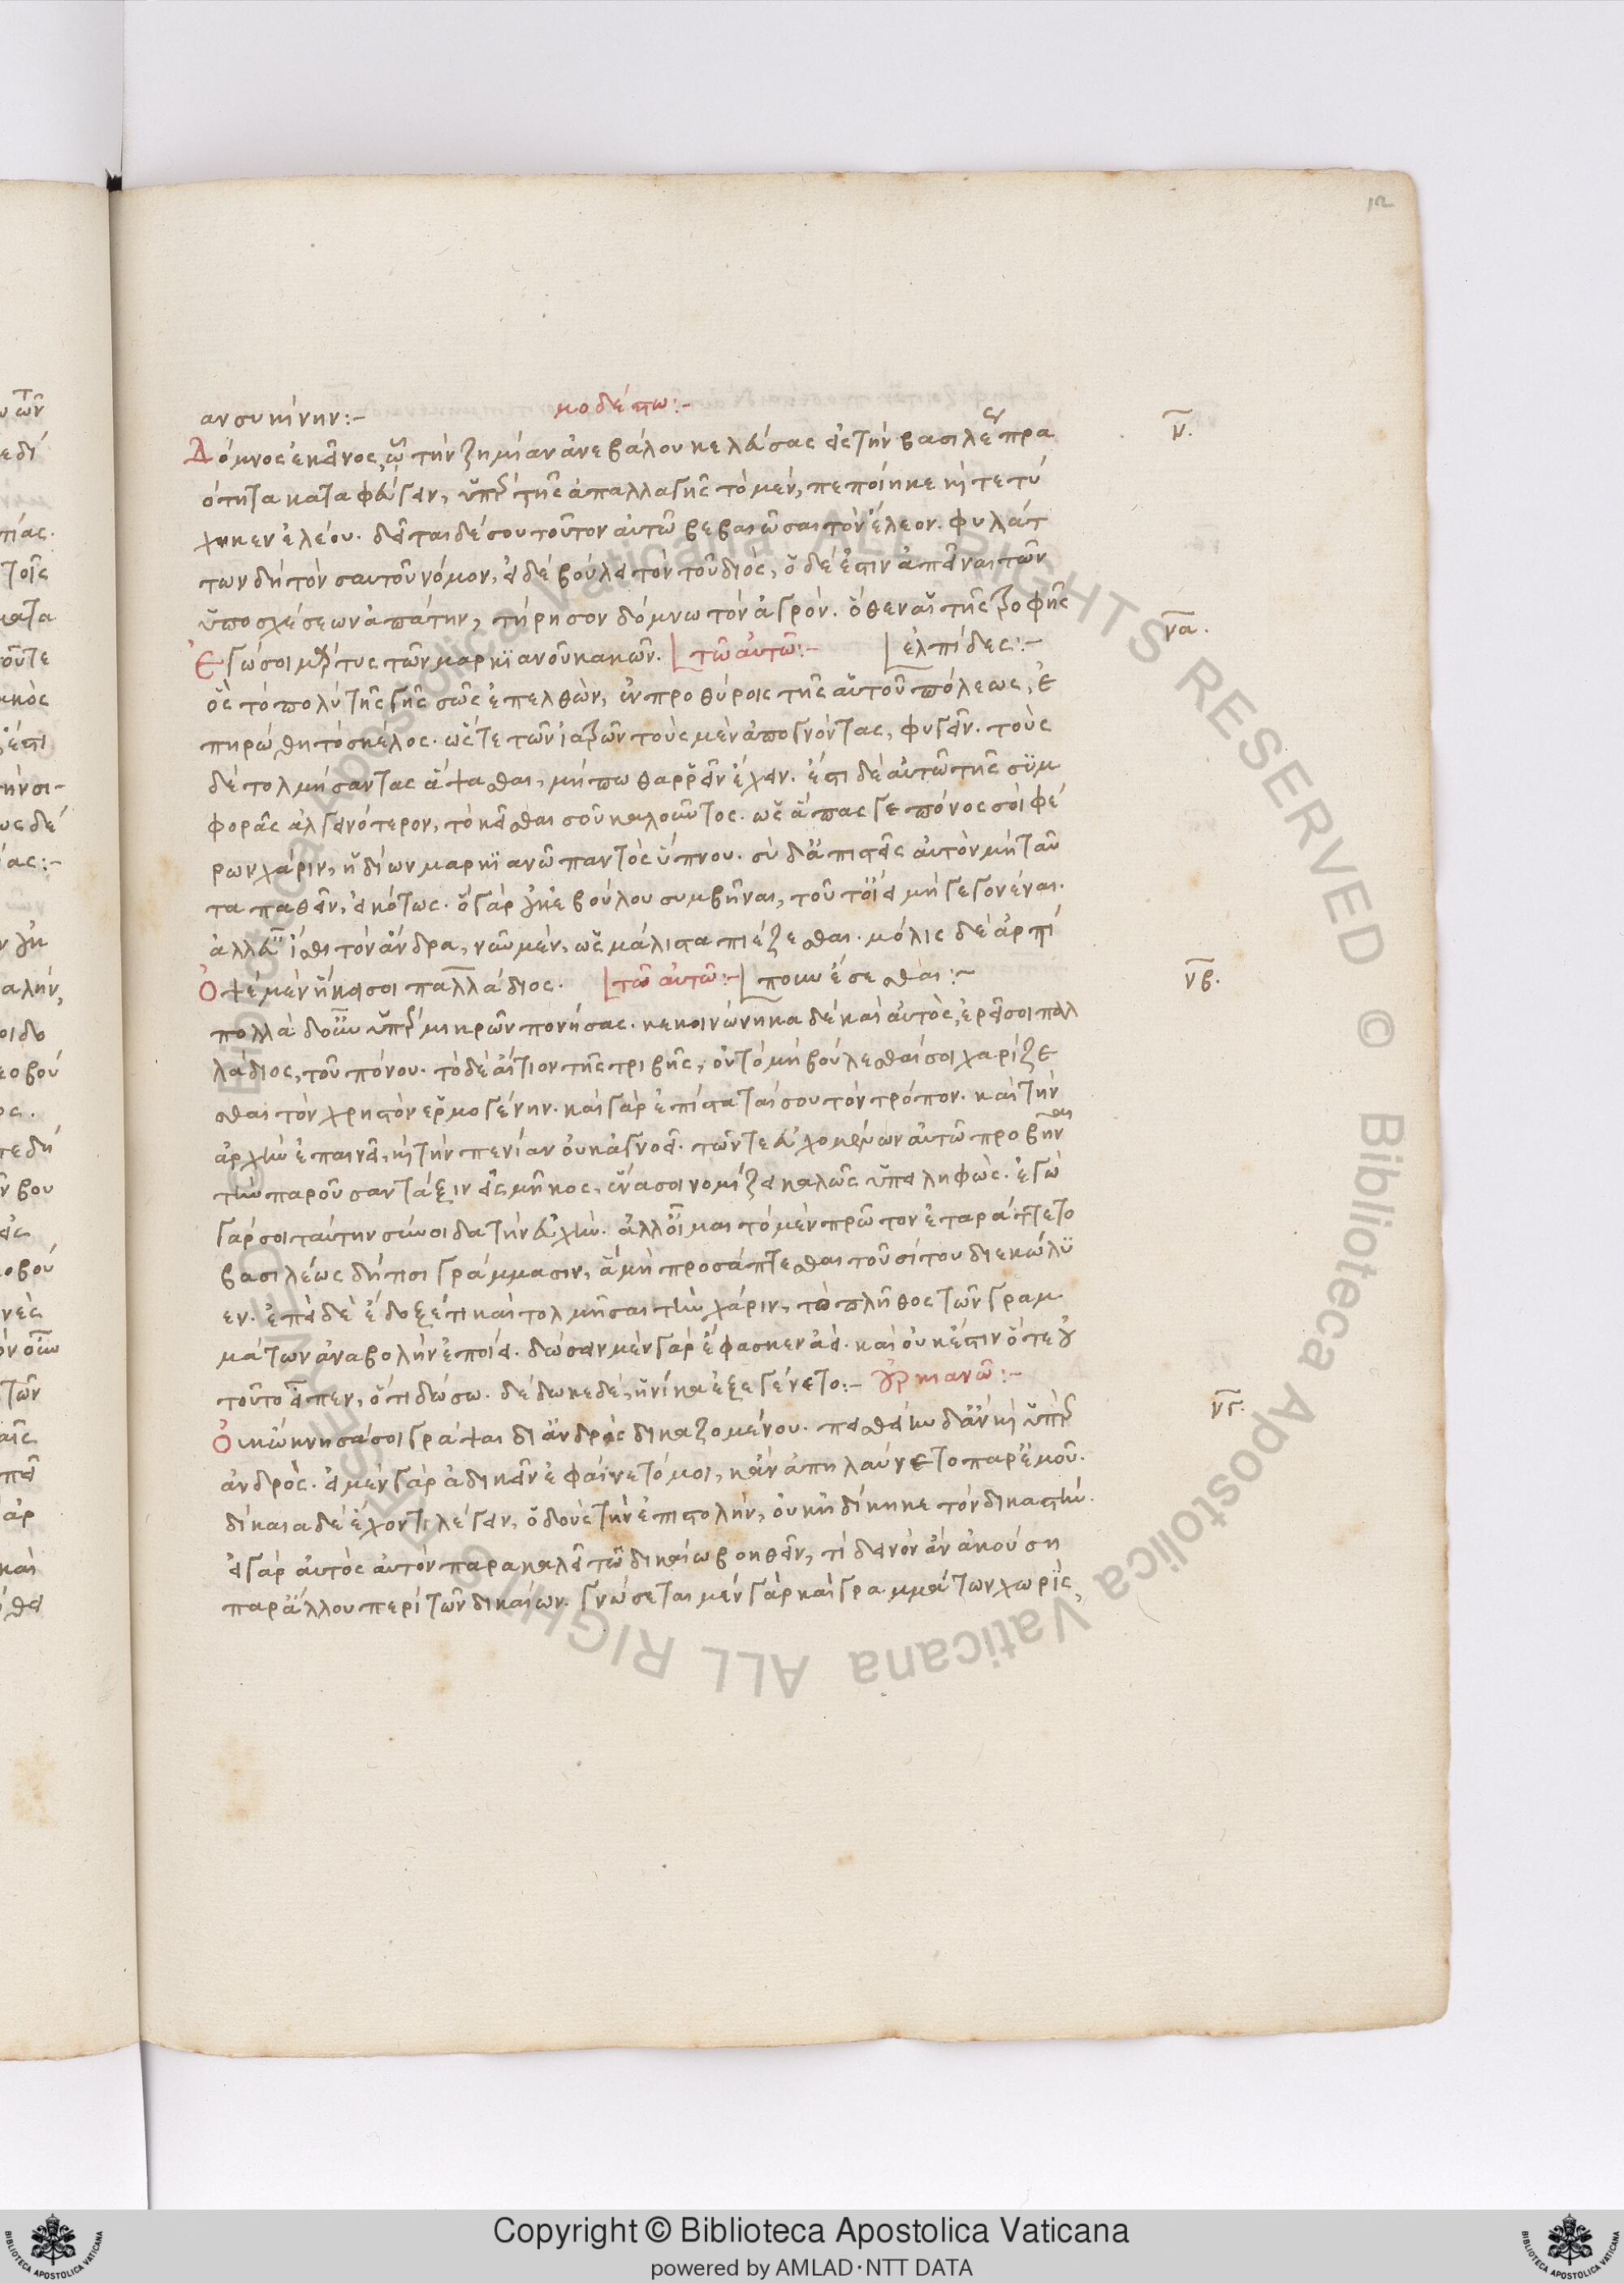 12
αν συκίνην:- μοδέστω:-
Δόμνος ἐκεῖνος, ὧ τὴν ζημίαν ἀνεβάλου κελεύσας εἰς τὴν βασιλέως πρα ν.
ότητα καταφεύγειν, ὑπὲρ τῆς ἀπαλλαγῆς τὸ μὲν, πεποίηκε καὶ τετύ
χηκεν ἐλέου. δεῖται δέ σου τοῦτον αὐτῶ βεβαιῶσαι τὸν ἔλεον. φυλάτ
των δὴ τὸν σαυτοῦ νόμον, εἰ δὲ βούλει τὸν τοῦ διὸς, ὃ δέ ἐστιν ἀπεῖναι τῶν
ὑποσχέσεων ἀπάτην, τήρησον δόμνω τὸν ἀγρόν. ὅθεν αὖ τῆς τροφῆς
Ἐγώ σοι μάρτυς τῶν μαρκιανοῦ κακῶν. τῶ αὐτῶ:- ἐλπίδες:- να.
ὃς τὸ πολὺ τῆς γῆς σῶς ἐπελθὼν, ἐν προθύροις τῆς αὑτοῦ πόλεως, ἐ
πηρώθη τὸ σκέλος. ὥστε τῶν ἰατρῶν τοὺς μὲν ἀπογνόντας, φυγεῖν. τοὺς
δὲ τολμήσαντας ἅψασθαι, μήπω θαρρεῖν ἔχειν. ἔστι δὲ αὐτῶ τῆς συμ
φορᾶς ἀλγεινότερον, τὸ κεῖσθαι σοῦ καλοῦντος. ὡς ἅπας γε πόνος σοὶ φέ
ρων χάριν, ἡδίων μαρκιανῶ παντὸς ὕπνου. σὺ δ' ἀπιστεῖς αὐτὸν μὴ ταῦ
τα παθεῖν, εἰκότως. ὃ γὰρ οὐκ ἐβούλου συμβῆναι, τοῦτ' οἴει μὴ γεγονέναι.
ἀλλ' εὖ ἴσθι τὸν ἄνδρα, νῦν μὲν, ὡς μάλιστα πιέζεσθαι. μόλις δὲ ἀρτί
Ὀψὲ μὲν ἧκει σοι παλλάδιος. τῶ αὐτῶ:- που ἔσεσθαι:- νβ.
πολλὰ δ' οὖν ὑπὲρ μικρῶν πονήσας. κεκοινώνηκα δὲ καὶ αὐτὸς, ἐρεῖ σοι παλ
λάδιος, τοῦ πόνου. τὸ δὲ αἴτιον τῆς τριβῆς, οὐ τὸ μὴ βούλεσθαί σοι χαρίζε
σθαι τὸν χρηστὸν ἑρμογένην. καὶ γὰρ ἐπίσταταί σου τὸν τρόπον. καὶ τὴν
ἀρχὴν ἐπαινεῖ, καὶ τὴν πενίαν οὐκ ἀγνοεῖ. τῶν τε εὐχομένων αὐτῶ προβῆναι
τὴν παροῦσαν τάξιν εἰς μῆκος, ἕνα σοι νομίζει καλῶς ὑπειληφώς. ἐγὼ
γάρ σοι ταύτην σύνοιδα τὴν εὐχήν. ἀλλ' οἶμαι τὸ μὲν πρῶτον ἐταράττετο
βασιλέως δή τισι γράμμασιν, ἃ μὴ προσάπτεσθαι τοῦ σίτου διεκώλυ
εν. ἐπεὶ δὲ ἔδοξέ τι καὶ τολμῆσαι τὴν χάριν, τὸ πλῆθος τῶν γραμ
μάτων ἀναβολὴν ἐποίει. δώσειν μὲν γὰρ ἔφασκεν ἀεί. καὶ οὐκ ἔστιν ὅτε οὐ
τοῦτο εἶπεν, ὅτι δώσω. δέδωκε δὲ, ἡνίκα ἐξεγένετο:- γερμανῶ:-
Οὐκ ὤκνησά σοι γράψαι δι' ἀνδρὸς δικαζομένου. πεσθείην δ' ἂν καὶ ὑπὲρ νγ.
ἀνδρὸς. εἰ μὲν γὰρ ἀδικεῖν ἐφαίνετό μοι, κἂν ἀπηλαύνετο παρ' ἐμοῦ.
δίκαια δὲ ἔχοντι λέγειν, ὁ δοὺς τὴν ἐπιστολὴν, οὐκ ἠδίκηκε τὸν δικαστήν.
εἰ γὰρ αὐτὸς αὐτὸν παρακαλεῖ τῶ δικαίω βοηθεῖν, τί δεινὸν ἂν ἀκούση
παρ' ἄλλου περὶ τῶν δικαίων. γνώσεται μὲν γὰρ καὶ γραμμάτων χωρὶς,
Copyright © Biblioteca Apostolica Vaticana
powered by AMLAD·NTT DATA